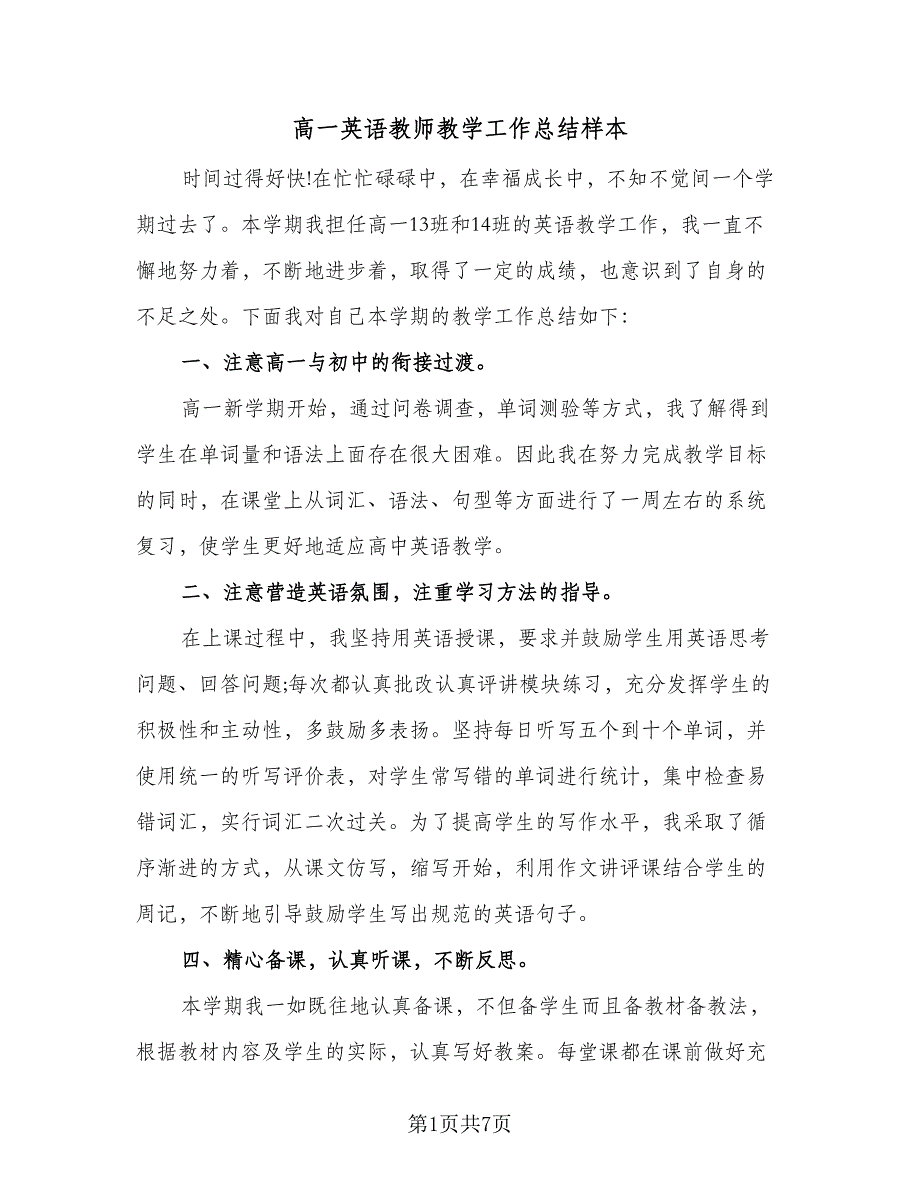 高一英语教师教学工作总结样本
时间过得好快!在忙忙碌碌中，在幸福成长中，不知不觉间一个学
期过去了。本学期我担任高一13班和14班的英语教学工作，我一直不
懈地努力着，不断地进步着，取得了一定的成绩，也意识到了自身的
不足之处。下面我对自己本学期的教学工作总结如下：
一、注意高一与初中的衔接过渡。
高一新学期开始，通过问卷调查，单词测验等方式，我了解得到
学生在单词量和语法上面存在很大困难。因此我在努力完成教学目标
的同时，在课堂上从词汇、语法、句型等方面进行了一周左右的系统
复习，使学生更好地适应高中英语教学。
二、注意营造英语氛围，注重学习方法的指导。
在上课过程中，我坚持用英语授课，要求并鼓励学生用英语思考
问题、回答问题;每次都认真批改认真评讲模块练习，充分发挥学生的
积极性和主动性，多鼓励多表扬。坚持每日听写五个到十个单词，并
使用统一的听写评价表，对学生常写错的单词进行统计，集中检查易
错词汇，实行词汇二次过关。为了提高学生的写作水平，我采取了循
序渐进的方式，从课文仿写，缩写开始，利用作文讲评课结合学生的
周记，不断地引导鼓励学生写出规范的英语句子。
四、精心备课，认真听课，不断反思。
本学期我一如既往地认真备课，不但备学生而且备教材备教法，
根据教材内容及学生的实际，认真写好教案。每堂课都在课前做好充
第1页共7页